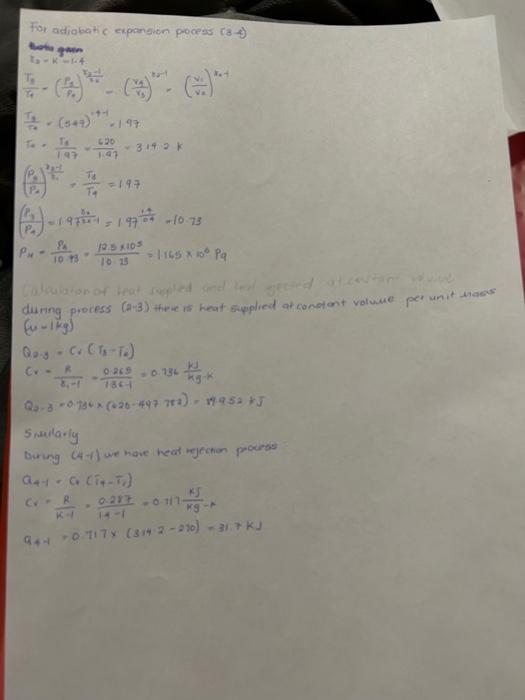 For adiabatic expansion process (3-4)
γ2 = K = 1.4
T3/T4 = (P3/P4)^(γ2-1/γ2) = (V4/V3)^(γ2-1) = (V1/V2)^(γ2-1)
T3/T4 = (5.47)^(1.4-1) = 1.97
T4 = T3/1.97 = 620/1.97 = 314.2 K
(P3/P4)^(γ2-1/γ2) = T3/T4 = 1.97
(P3/P4) = 1.97^(γ2/γ2-1) = 1.97^(1.4/0.4) = 10.73
P4 = /10.73 = 12.5 x10^5/10.73 = 1.165 x 10^6 Pa
Calculation of heat supplied and heat rejected at constant volume
during process (2-3) there is heat supplied at constant volume per unit mass
(m = 1kg)
Q2-3 = Cv (T3-T2)
Cv = R/γ1-1 = 0.265/1.36-1 = 0.736 KJ/Kg-K
Q2-3 = 0.736 x (620-497.782) = 89.952 KJ
Similarly
During (4-1) we have heat rejection process
Q4-1 = Cv (T4-T1)
Cv = R/K-1 = 0.287/1.4-1 = 0.717 KJ/Kg-K
q4-1 = 0.717 x (314.2 - 270) = 31.7 KJ